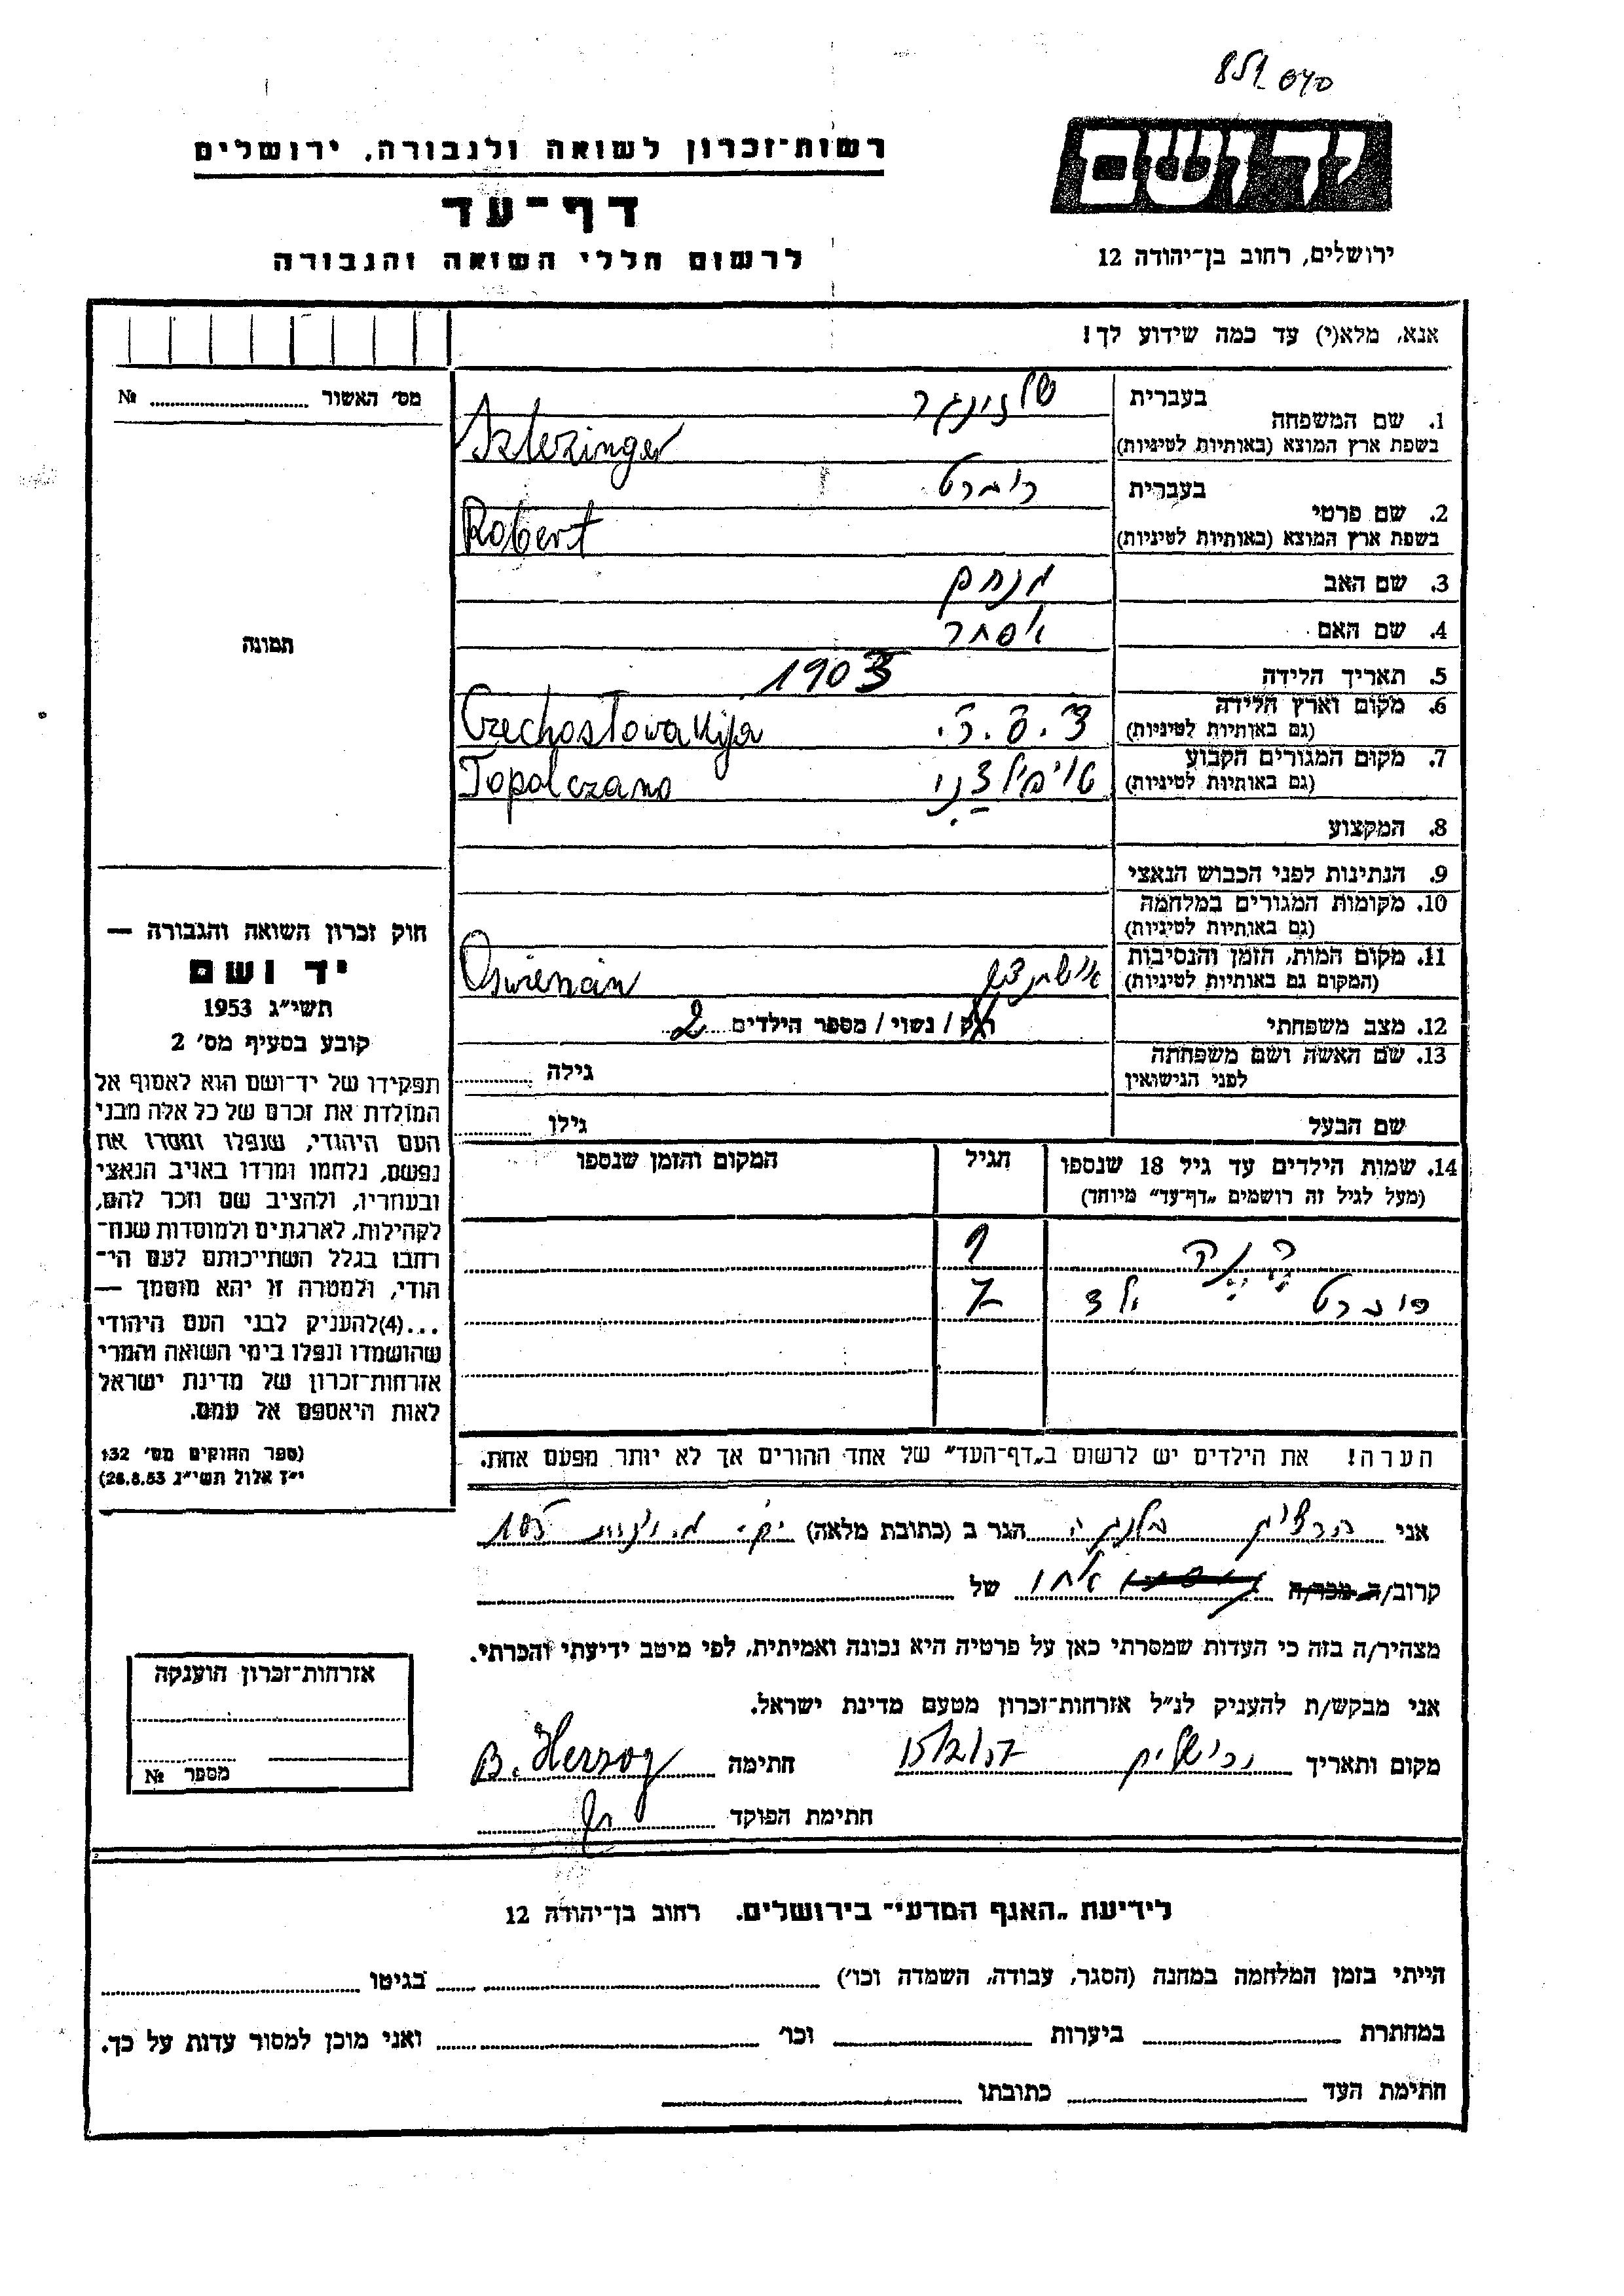 851 040
יד ושם
רשות־זכרון לשואה ולגבורה, ירושלים
דף־עד
לרשום חללי השואה והגבורה
ירושלים, רחוב בן־יהודה 12
אנא, מלא(י) עד כמה שידוע לך!
מס׳ האשור № 
1. שם המשפחה בעברית שלזינגר
בשפת ארץ המוצא (באותיות לטיניות) Szlezinger
2. שם פרטי בעברית רוברט
בשפת ארץ המוצא (באותיות לטיניות) Robert
3. שם האב מנחם
4. שם האם אסתר
5. תאריך הלידה 1903
6. מקום וארץ הלידה (גם באותיות לטיניות) צ.ס.ר. Czechoslovakija
7. מקום המגורים הקבוע (גם באותיות לטיניות) טופולצני Topolczano
8. המקצוע
9. הנתינות לפני הכבוש הנאצי
10. מקומות המגורים במלחמה (גם באותיות לטיניות)
11. מקום המות, הזמן והנסיבות (המקום גם באותיות לטיניות)
12. מצב משפחתי רוק / נשוי / מספר הילדים 2
13. שם האשה ושם משפחתה לפני הנישואין גילה
שם הבעל גילו
תמונה
חוק זכרון השואה והגבורה —
יד ושם
תשי״ג 1953
קובע בסעיף מס׳ 2
תפקידו של יד־ושם הוא לאסוף אל
המולדת את זכרם של כל אלה מבני
העם היהודי, שנפלו ומסרו את
נפשם, נלחמו ומרדו באויב הנאצי
ובעוזריו, ולהציב שם וזכר להם,
לקהילות, לארגונים ולמוסדות שנח־
רחבו בגלל השתייכותם לעם הי־
הודי, ולמטרה זו יהא מוסמך —
...(4)להעניק לבני העם היהודי
שהושמדו ונפלו בימי השואה והמרי
אזרחות־זכרון של מדינת ישראל
לאות היאספם אל עמם.
(ספר החוקים מס׳ 132
י״ז אלול תשי״ג 28.8.53)
14. שמות הילדים עד גיל 18 שנספו הגיל המקום והזמן שנספו
(מעל לגיל זה רושמים „דף־עד״ מיוחד)
9
רוברט ילד 7
הערה! את הילדים יש לרשום ב„דף־העד״ של אחד ההורים אך לא יותר מפעם אחת.
אני הרצוג בלנקה הגר ב (כתובת מלאה) 105
קרוב/ה מכר/ה אחו של
מצהיר/ה בזה כי העדות שמסרתי כאן על פרטיה היא נכונה ואמיתית, לפי מיטב ידיעתי והכרתי.
אני מבקש/ת להעניק לנ״ל אזרחות־זכרון מטעם מדינת ישראל.
מקום ותאריך ירושלים 15/2/57 חתימה B. Herzog
חתימת הפוקד
אזרחות־זכרון הוענקה
מספר №
לידיעת „האגף המדעי״ בירושלים, רחוב בן־יהודה 12
הייתי בזמן המלחמה במחנה (הסגר, עבודה, השמדה וכו׳) בגיטו
במחתרת ביערות וכו׳ ואני מוכן למסור עדות על כך.
חתימת העד כתובתו